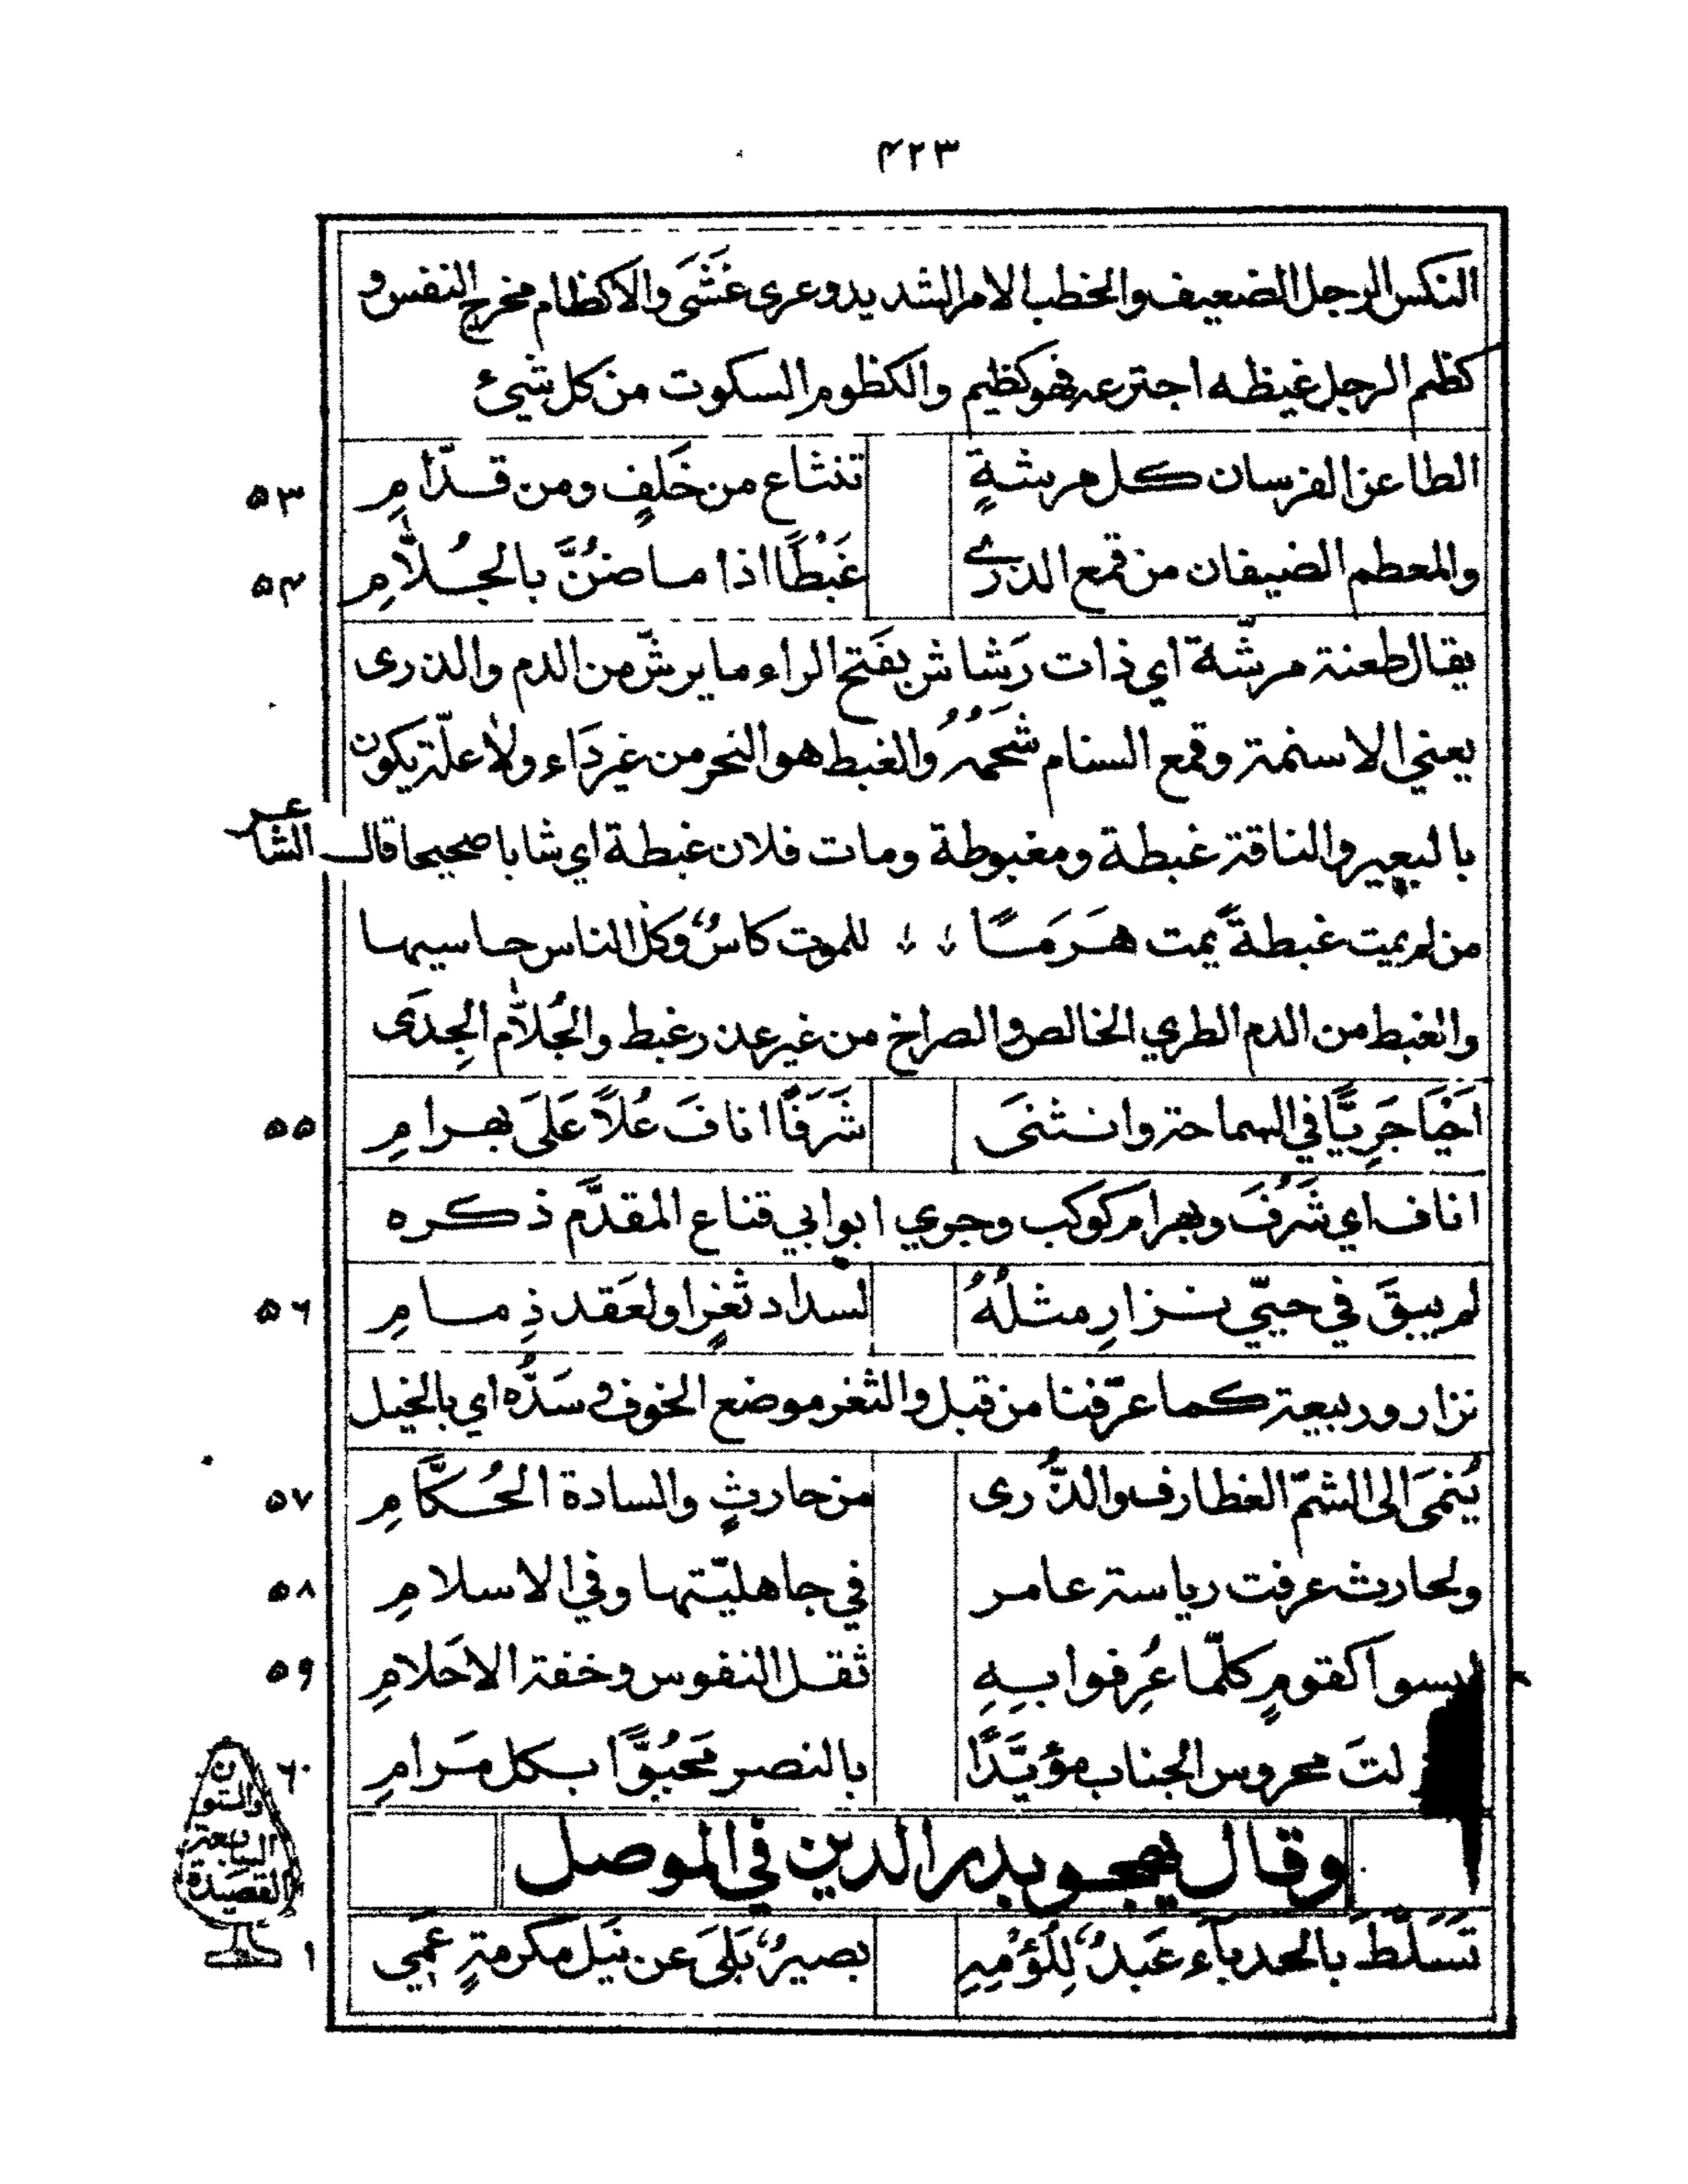 ٤٢٣
النكس الرجل الضعيف والخطب الامر الشديد وعرى غَشَى والاكظام مخرج النفس و
كظم الرجل غيظه اجترعه فهو كظيم والكظوم السكوت من كل شيئ
الطاعن الفرسان كل مرشةٍ تنثاع من خَلفٍ ومن قدّامِ ٥٣
والمطعم الضيفان من قمع الذرى غَبْطًا اذا ما ضنَّ بالجُلاّمِ ٥٤
يقال طعنة مرشّة اي ذات رَشاش بفَتح الراء ما يرشّ من الدم والذرى
يعني الاسنمة وقمع السنام شحمهُ والغبط هو النحر من غير دَاء ولا علّة يكون
بالبعير والناقة غبطة ومغبوطة ومات فلان غبطة اي شابا صحيحا قال الشاعر
من لم يمت غبطةً يمت هَرَمًا للموت كاسٌ وكل الناس حاسيها
والغبط من الدم الطري الخالص والصراخ من غير عذر غبط والجُلاّم الجِدَى
اَحْيَا جَرِيًّا في السماحة وانثنَى شَرَفًا انافَ عُلاً عَلَى بهرامِ ٥٥
اناف اي شَرُفَ وبهرام كوكب وجري ابو ابي قناع المقدَّم ذكره
لم يبقَ في حيّي نزارِ مثلُهُ لسداد ثغرٍ او لعَقد ذِمامِ ٥٦
نزار وربيعة كما عرّفنا من قبل والثغر موضع الخوف وسَدُّه اي بالخيل
يُنمَى الى الشمّ الغطارف والذُّرى من حارثٍ والسادة الحُكَّامِ ٥٧
ولحارث عرفت رياسة عامر في جاهليّتها وفي الاسلامِ ٥٨
ليسوا كقومٍ كلّما عُرِفوا بِهِ ثقل النفوس وخفة الاحَلامِ ٥٩
لتَ محروس الجناب مؤيَّدًا بالنصر مَحبُوًّا بكل مَرامِ ٦٠
وقال يهجو بدر الدين في الموصل
القصيدة السابعة والستون
تَسَلَّطَ بالحدبآء عَبدٌ لِلُؤْمِهِ بصيرٌ بَلَى عن نَيل مكرمةٍ عَمِي ١